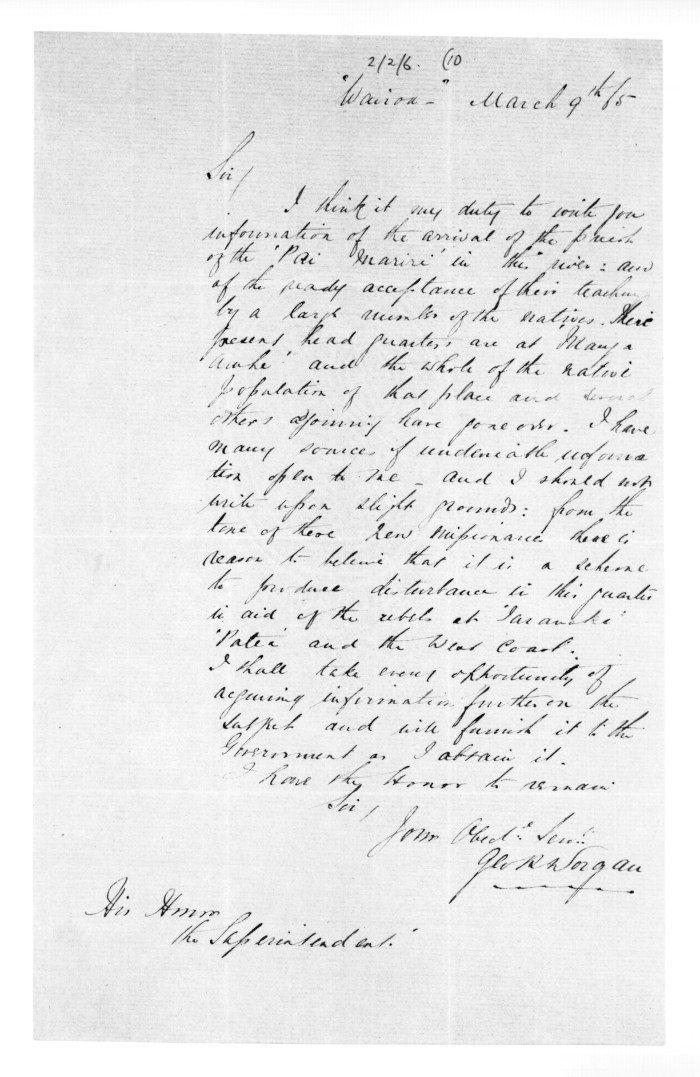 2/2/6. (10
"Wairoa -" March 9th /65
Sir/
I think it my duty to write you
information of the arrival of the priests
of the 'Pai Mariri' in this river: and
of the ready acceptance of their teaching
by a large number of the natives. Their
present head quarters are at 'Manga
Awhe' and the whole of the native
population of that place and several
others adjoining have gone over. I have
many sources of undeniable informa
tion open to me - and I should not
write upon slight grounds: from the
tone of these new missionaries there is
reason to believe that it is a scheme
to produce disturbance in this quarter
in aid of the rebels at 'Taranaki'
'Patea' and the West Coast.
I shall take every opportunity of
acquiring information further on the
subject and will furnish it to the
Government as I obtain it.
I have the Honor to remain
Sir/
Your Obedt. Servt.
Geo R Worgan
His Honor
the Superintendent.